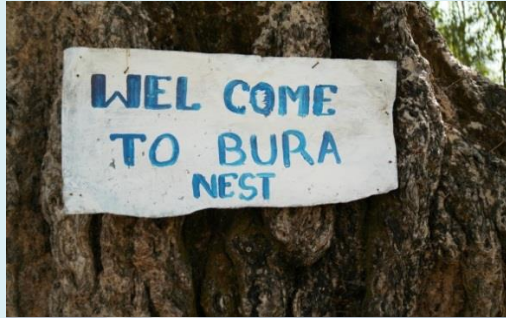 WEL COME
TO BURA
NEST